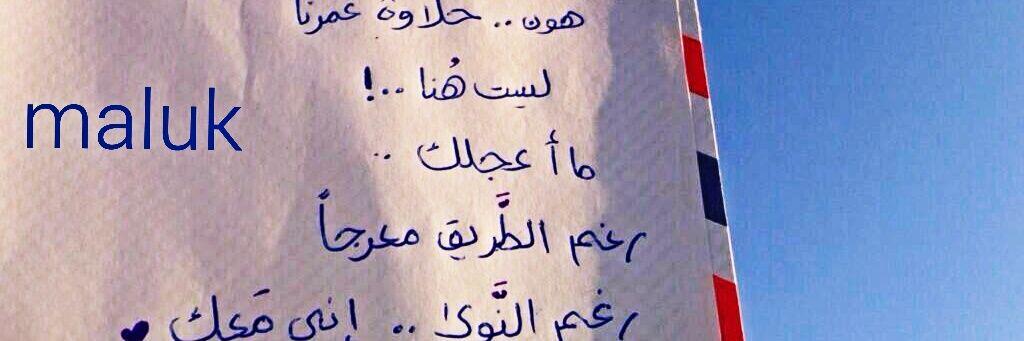 هون.. حلاوة عمرنا
ليست هُنا ..!
maluk
ما أعجلك ..
رغم الطَّريق معرجاً
رغم النَّوى .. إني مَعك